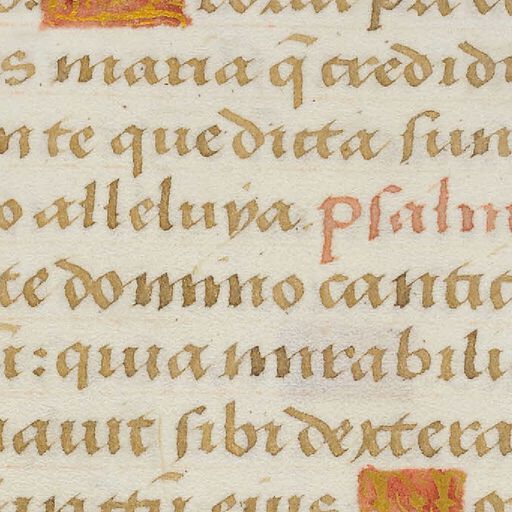 s maria q̃ credidi
nte que dicta sun
o alleluya psalm
te domino cantic
: quia mirabili
auit sibi dextera
eius